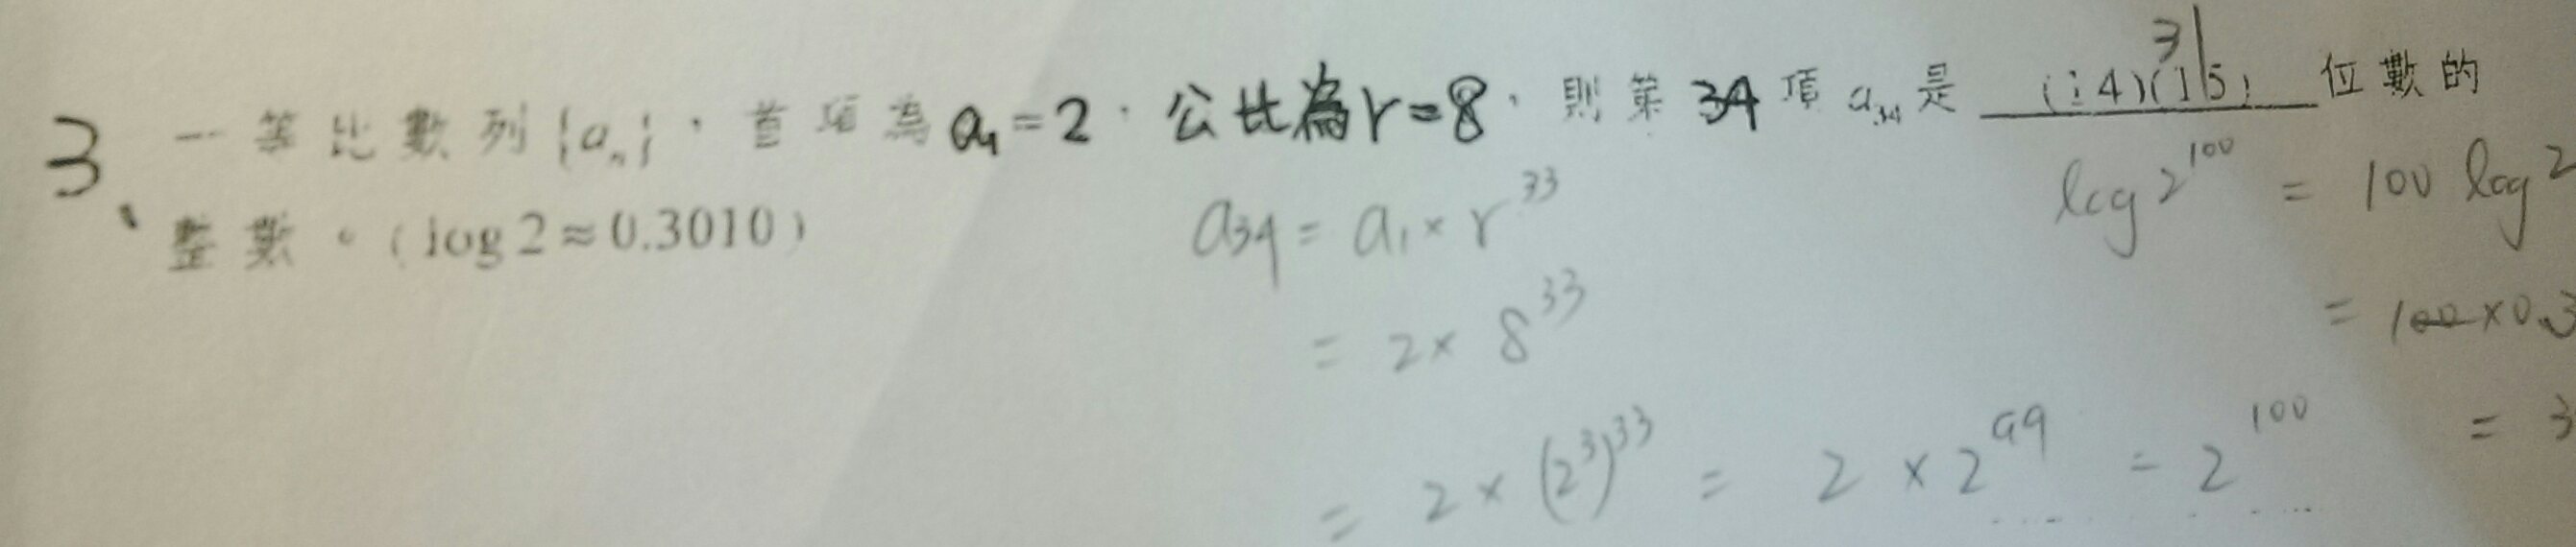 3、一等比數列{aₙ}，首項為a₁=2，公比為r=8，則第34項a₃₄是 (14)(15) 位數的
31
整數。(log2≈0.3010)
a₃₄ = a₁ × r³³
= 2 × 8³³
= 2 × (2³)³³ = 2 × 2⁹⁹ = 2¹⁰⁰
log2¹⁰⁰ = 100 log2
= 100 × 0.3
= 3